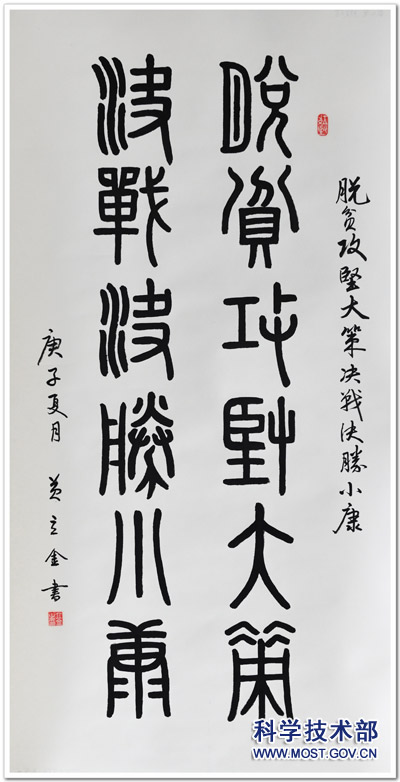 脫貧攻堅大策
決戰決勝小康
脱贫攻坚大策决战决胜小康
庚子夏月 黄立金书
科学技术部
WWW.MOST.GOV.CN